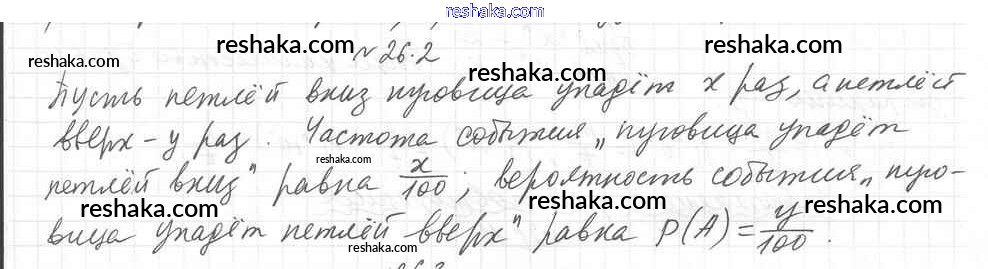 reshaka.com
reshaka.com reshaka.com
№ 26.2
reshaka.com reshaka.com
Пусть петлёй вниз пуговица упадёт x раз, а петлёй
вверх – y раз. Частота события „пуговица упадёт
reshaka.com reshaka.com
reshaka.com
петлёй вниз" равна x/100; вероятность события „пуго-
reshaka.com reshaka.com
вица упадёт петлёй вверх" равна P(A) = y/100.
reshaka.com